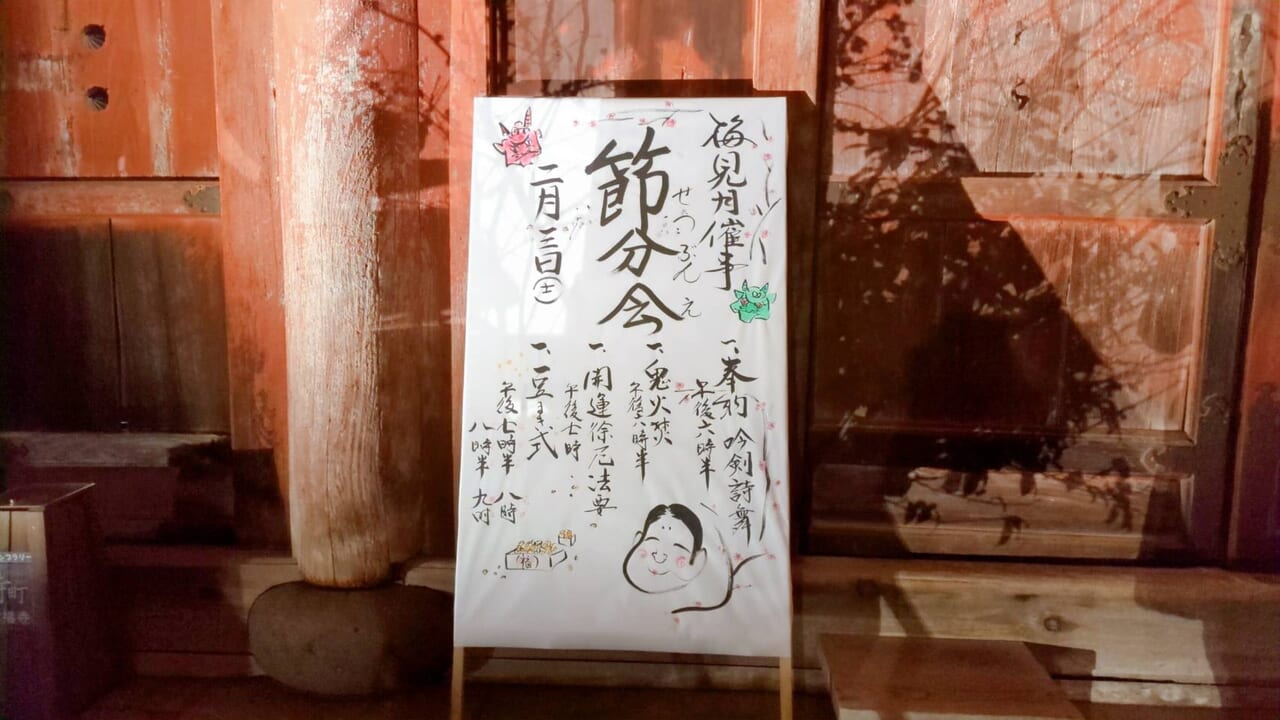 梅見月催事
節分会
せつぶんえ
二月三日(土)
一、奉納 吟剣詩舞
午後六時半
一、鬼火焚
午後六時半
一、開運除厄法要
午後七時
一、豆まき式
午後七時半 八時
八時半 九時
福